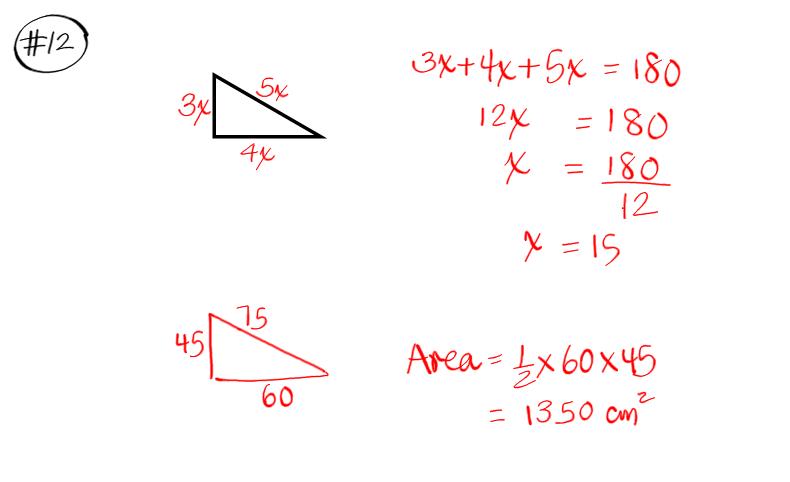 #12
3x
5x
4x
3x+4x+5x = 180
12x = 180
x = 180/12
x = 15
45
75
60
Area = 1/2 x 60 x 45
= 1350 cm²